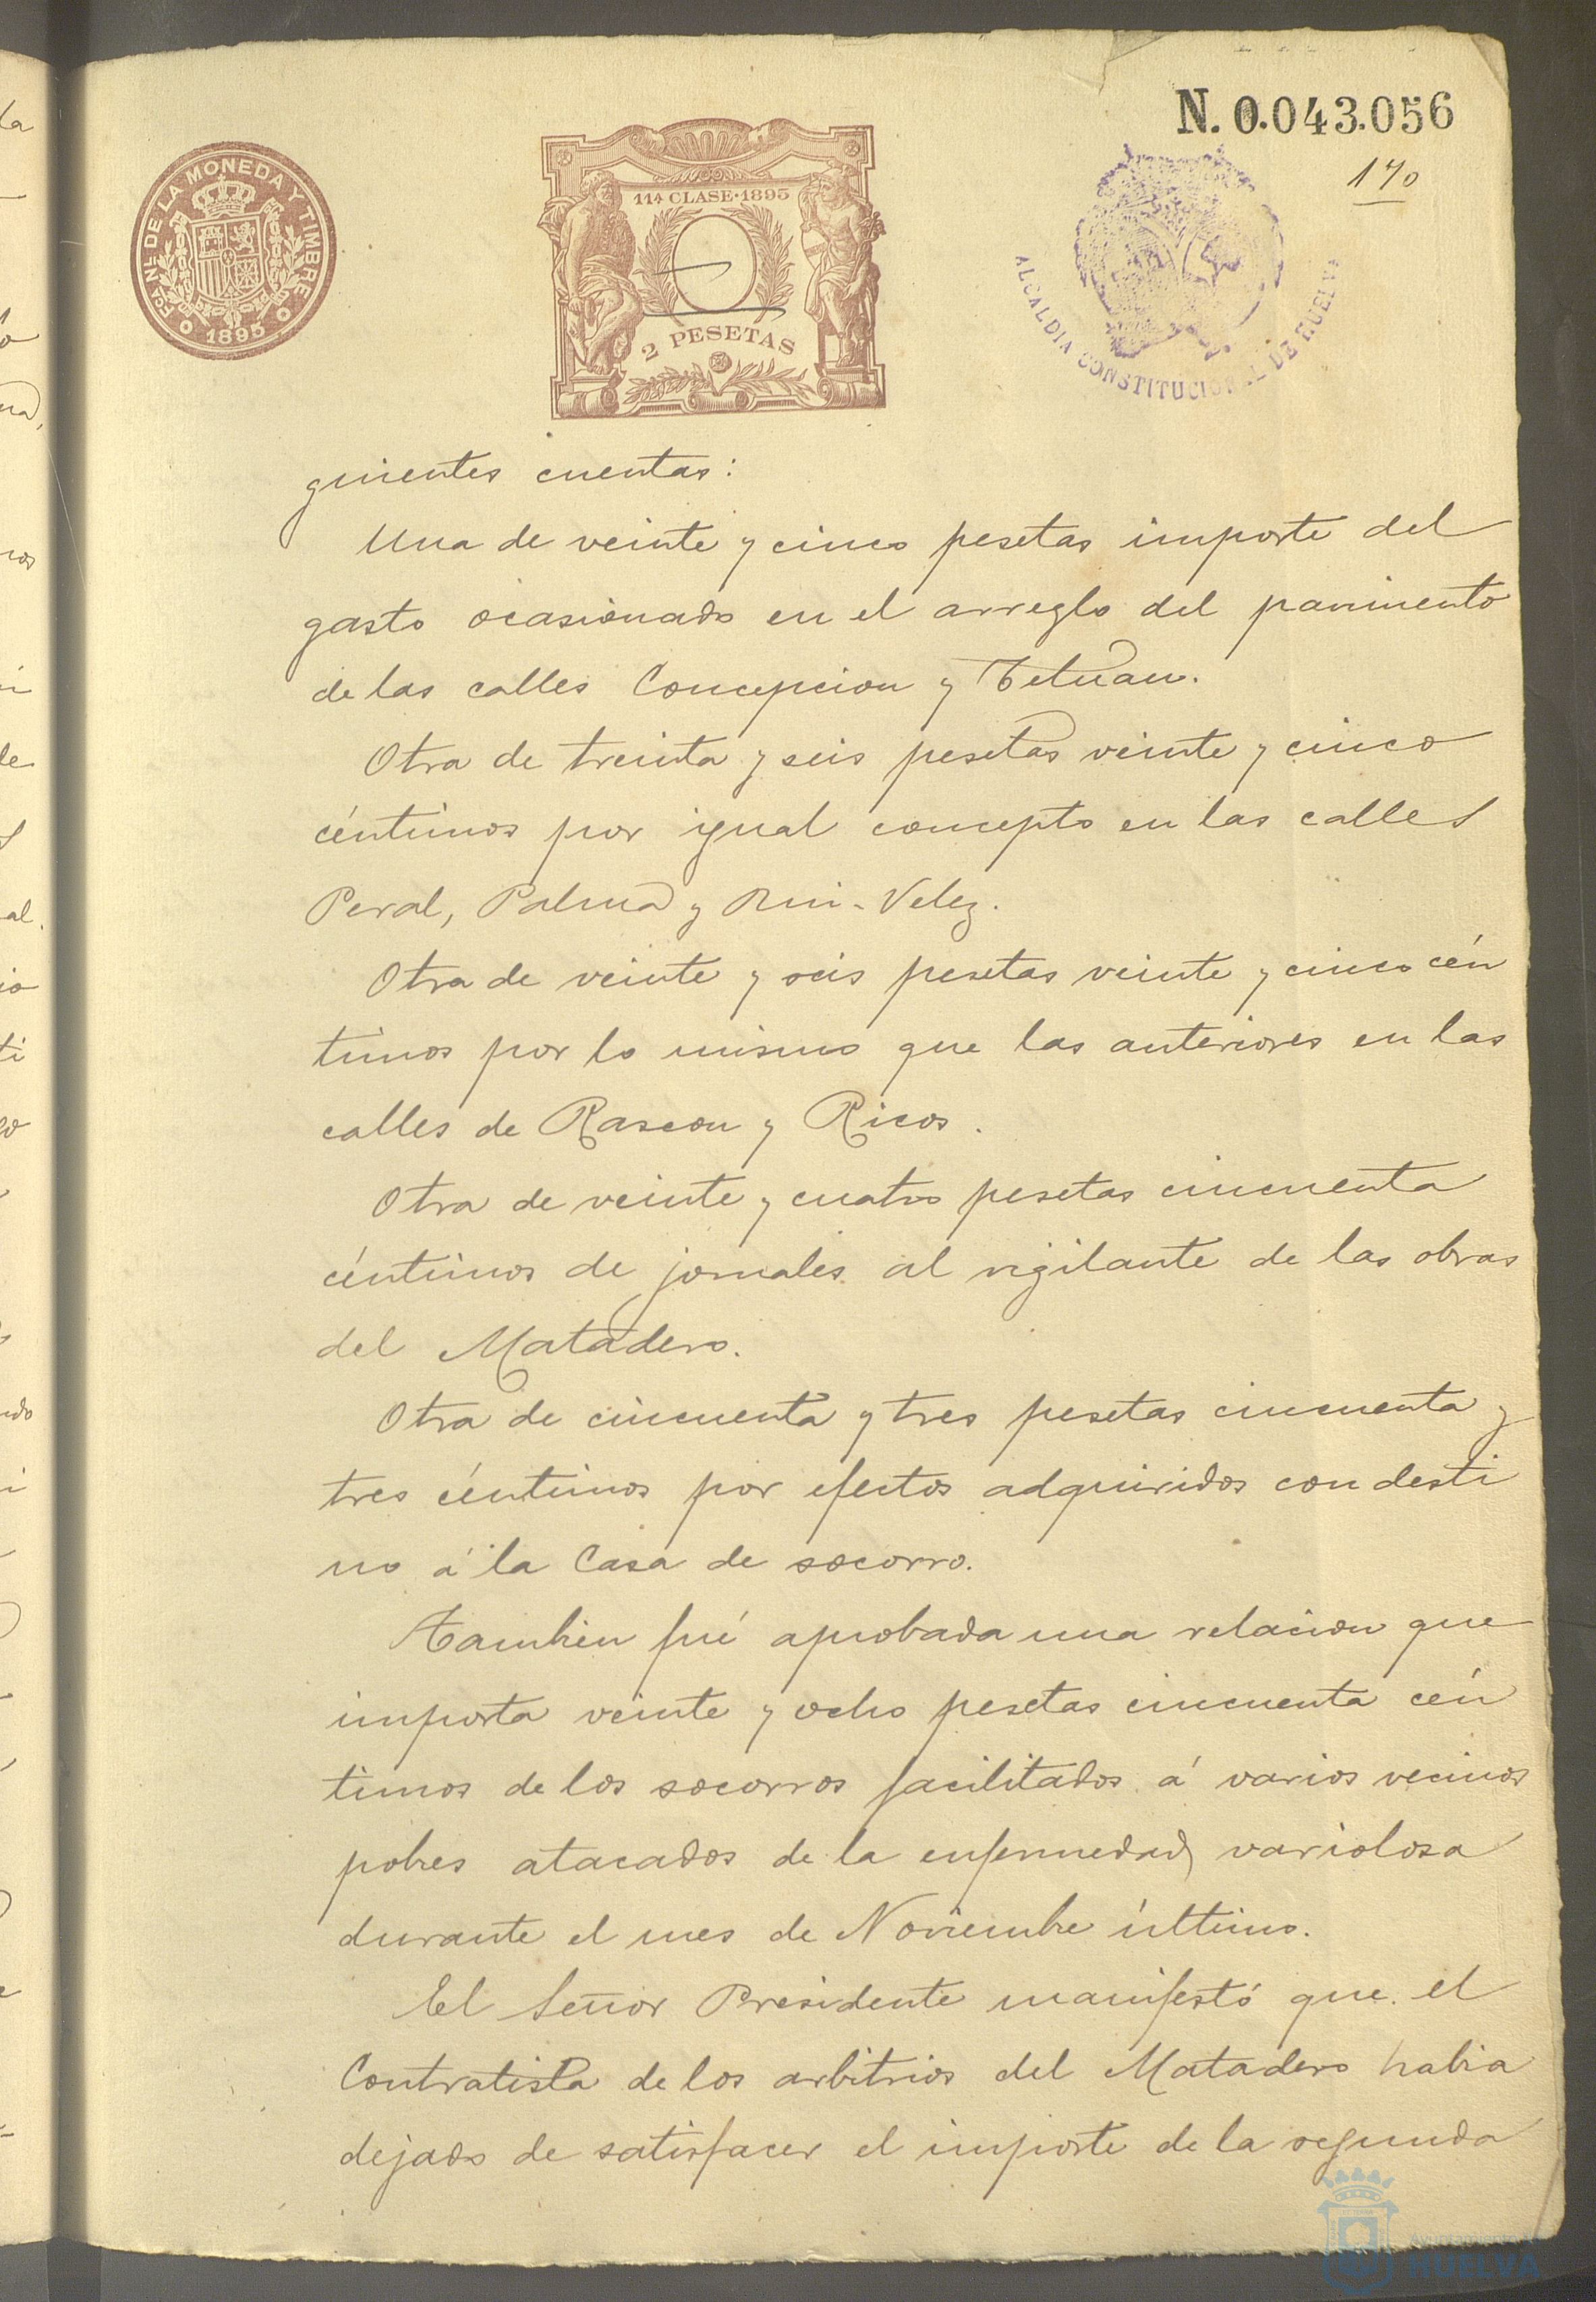 N. 0.043.056
170
FCA. NL. DE LA MONEDA Y TIMBRE
1895
11ª CLASE·1895
2 PESETAS
ALCALDIA CONSTITUCIONAL DE HUELVA
guientes cuentas:
Una de veinte y cinco pesetas importe del
gasto ocasionado en el arreglo del pavimento
de las calles Concepcion y Tetuan.
Otra de treinta y seis pesetas veinte y cinco
céntimos por igual concepto en las calles
Peral, Palma y Rui-Velez.
Otra de veinte y seis pesetas veinte y cinco cén
timos por lo mismo que las anteriores en las
calles de Rascon y Ricos.
Otra de veinte y cuatro pesetas cincuenta
céntimos de jornales al vigilante de las obras
del Matadero.
Otra de cincuenta y tres pesetas cincuenta y
tres céntimos por efectos adquiridos con desti
no á la Casa de socorro.
Tambien fué aprobada una relacion que
importa veinte y ocho pesetas cincuenta cén
timos de los socorros facilitados á varios vecinos
pobres atacados de la enfermedad variolosa
durante el mes de Noviembre último.
El Señor Presidente manifestó que el
Contratista de los arbitrios del Matadero habia
dejado de satisfacer el importe de la segunda
Ayuntamiento de
HUELVA